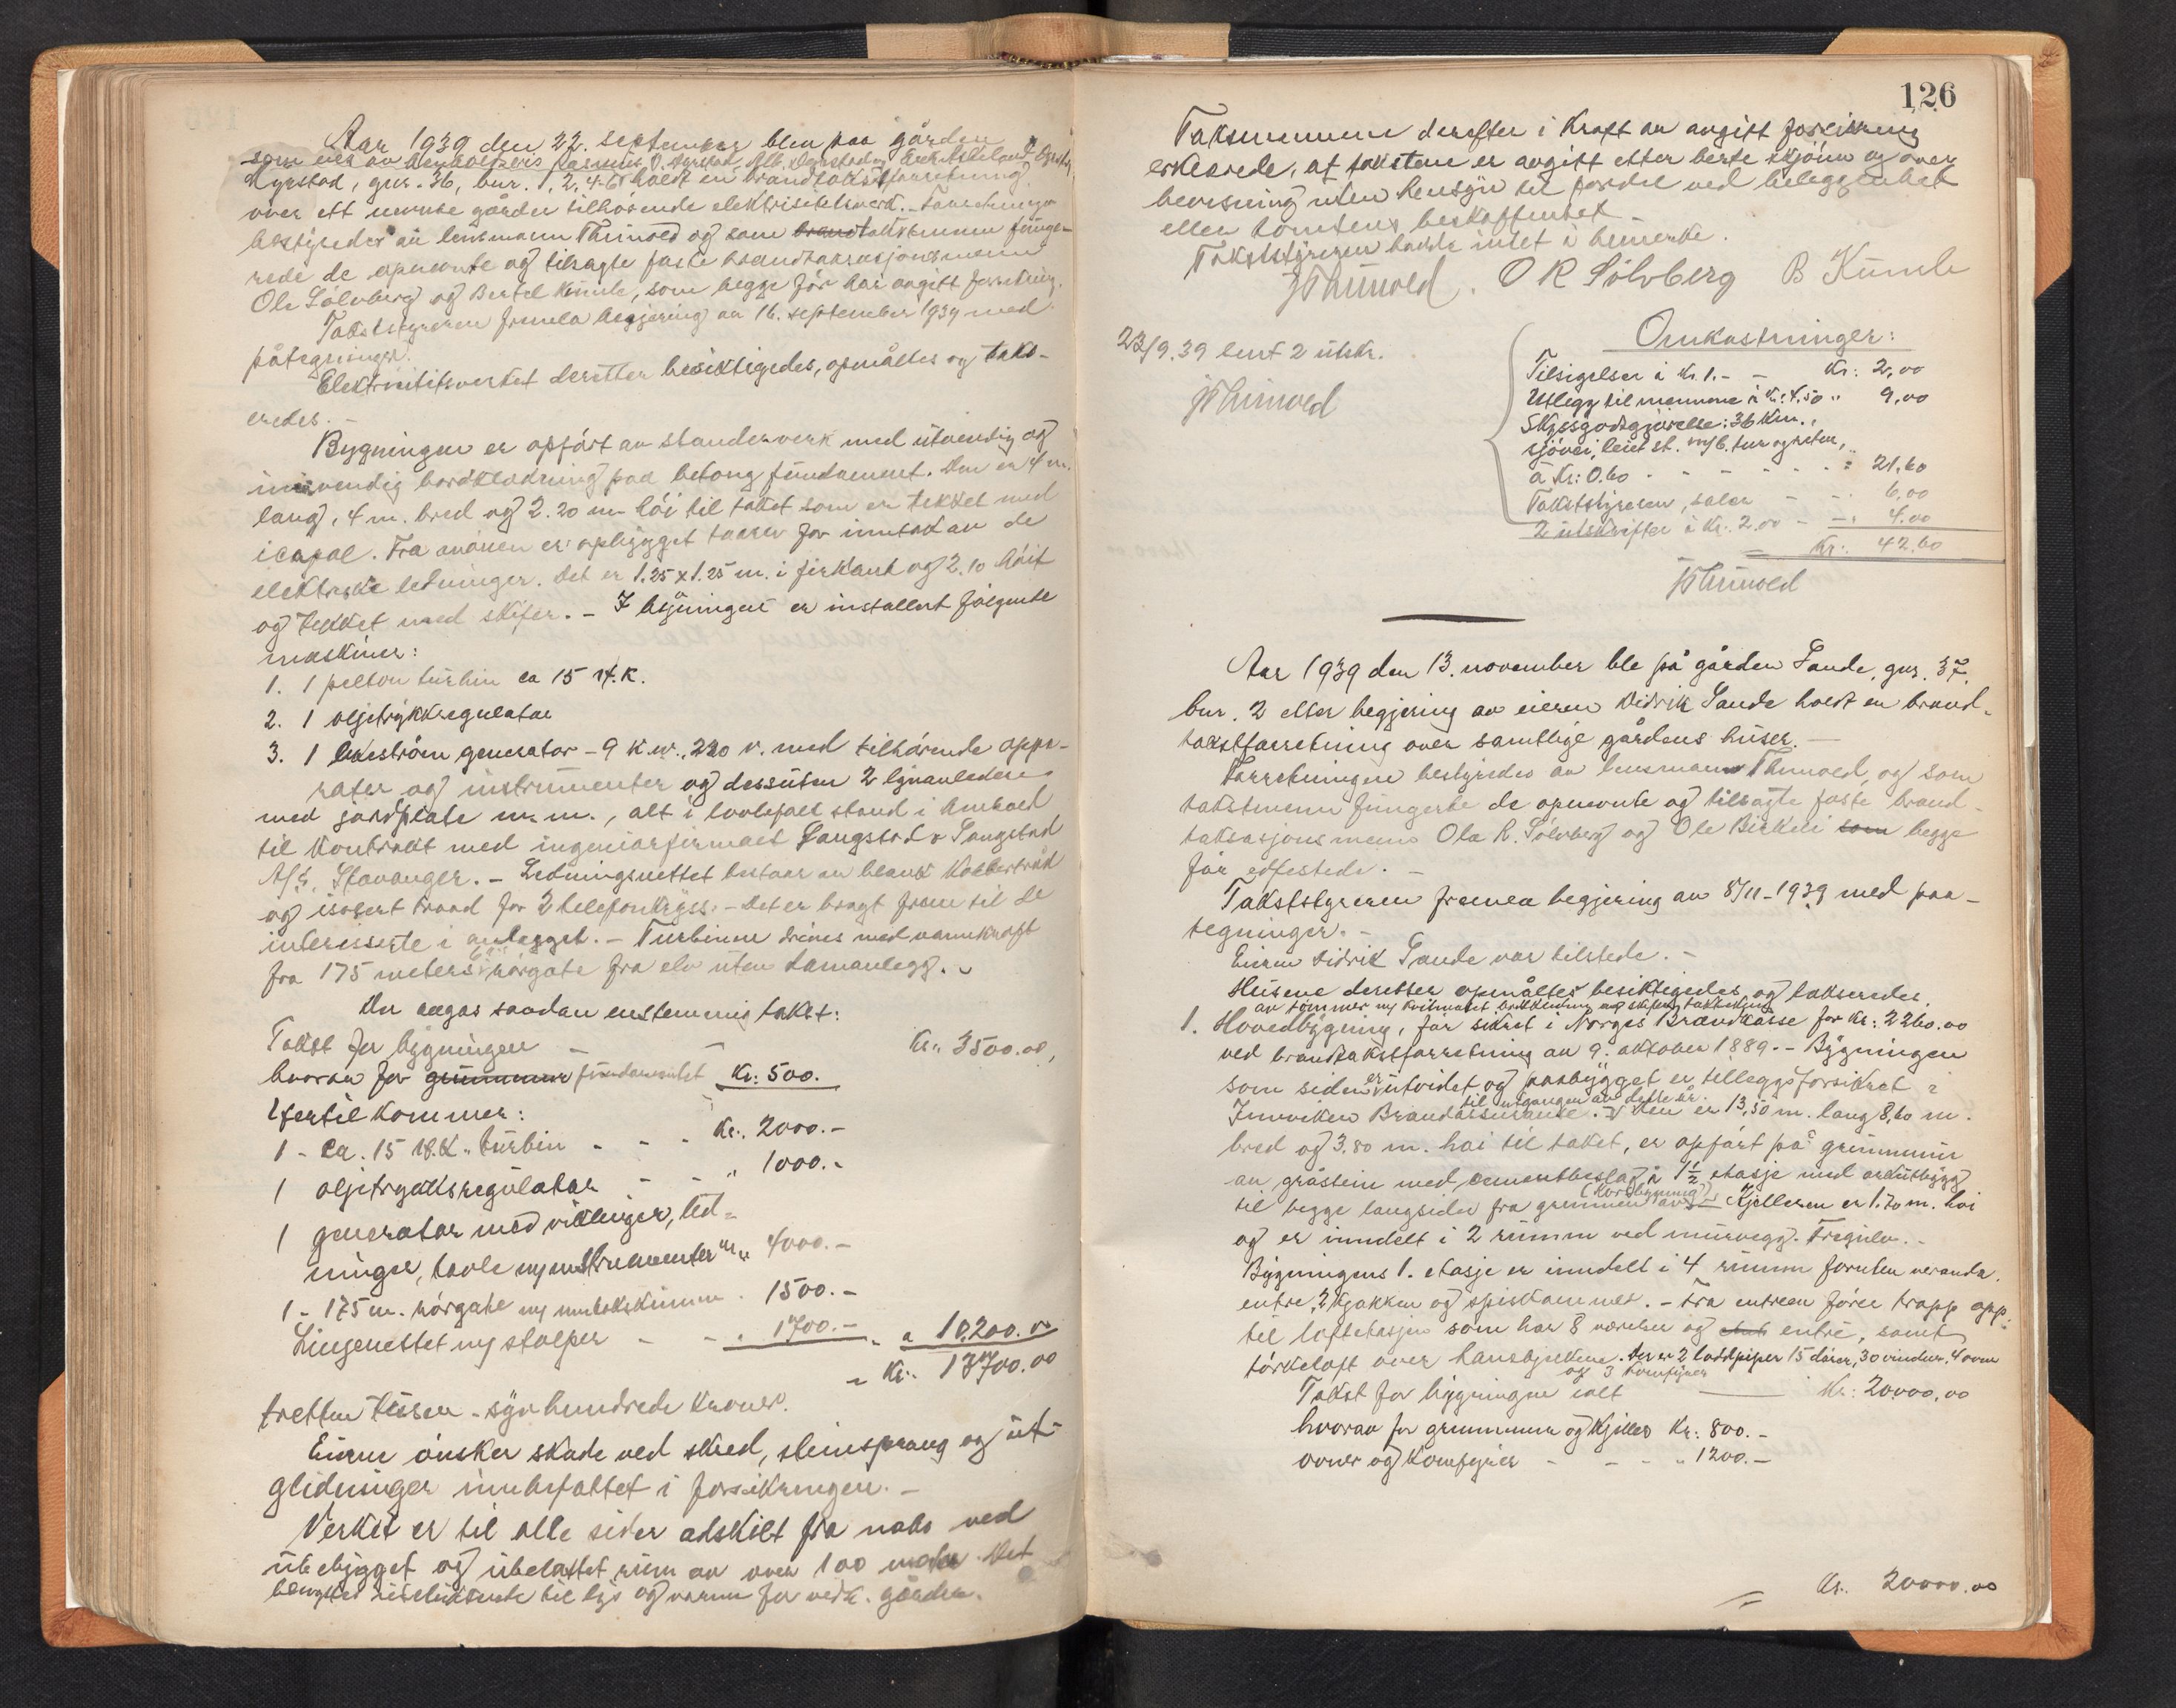 Aar 1939 den 22. september blev paa gården
Myrstad, gnr. 36, bnr. 1, 2, 4-6 holdt en brandtakstforretning
over ett nevnte gårder tilhørende elektrisitetsverk. - Forretningen
bestyredes av lensmann Thunold og som brand takstmenn funge-
rede de opnevnte og tilsagte faste brandtaksasjonsmenn
Ole Sølvberg og Bertel Kumle, som begge før har avgitt forsikring.
Takststyreren fremla begjering av 16. september 1939 med
påtegninger.
Elektrisitetsverket deretter besiktigedes, opmåltes og takse-
redes. -
Bygningen er opført av stenderverk med utvendig og
innvendig bordkledning paa betong fundament. Den er 4 m.
lang, 4 m. bred og 2.20 m høi til taket som er tekket med
icopal. Fra muren er opbygget taarn for inntak av de
elektriske ledninger. Det er 1.25 x 1.25 m. i firkant og 2.10 høit
og tekket med skifer. - I bygningen er installert følgende
maskiner:
1. 1 pelton turbin ca 15 H.K.
2. 1 oljetrykkregulator
3. 1 likestrøm generator - 9 k.w., 220 v. med tilhørende appa-
rater og instrumenter og dessuten 2 lynavledere
med jordplate m.m., alt i lovbefalt stand i henhold
til kontrakt med ingeniørfirmaet Langstad & Langstad
A/S, Stavanger. - Ledningsnettet bestaar av blank kobbertråd
og isolert traad for 2 telefonkryss. - Det er bragt frem til de
interesserte i anlegget. - Turbinen drives med vannkraft
fra 175 meters rørgate fra elv uten damanlegg. -
Der avgas saadan enstemmig takst:
Takst for bygningen - Kr. 3500.00,
hvorav for grunnmur fundamentet Kr: 500.
Hertil kommer:
1 - ca. 15 H.K. turbin - - - Kr. 2000.-
1 oljetrykksregulator - - " 1000.-
1 generator med viklinger, led-
ninger, tavle m/instrumenter m.m. " 4000.-
1 - 175 m. rørgate m/ inntakskumme . 1500.-
Linjenettet m/ stolper - - " 1700.- - " 10,200.00
- Kr. 13700.00
tretten tusen - syv hundrede kroner.
Eieren ønsker skade ved skred, steinsprang og ut-
glidninger innbefattet i forsikringen. -
Verket er til alle sider adskilt fra nabo ved
ubebygget og ubelastet rum av over 100 meter. Det
benyttes utelukkende til lys og varme for vedk. gårder.
126
Taksmennene derefter i kraft av avgitt forsikring
erklærede, at taksten er avgitt etter beste skjønn og over-
bevisning uten hensyn til fordel ved beleggenhet
eller tomtens beskaffenhet -
Takststyreren hadde intet å bemerke.
JThunold. O R Sølvberg B Kumle
23/9.39 sent 2 utskr.
JThunold
Omkostninger:
Tilsigelser à kr. 1.- - Kr: 2,00
Utlegg til mennene à Kr. 4.50 " 9,00
Skyssgodtgjørelse: 36 km.,
sjøvei, leiet st. m/b. tur og retur,
à Kr: 0.60 - - - - - : 21,60
Takststyreren, salær - - . 6,00
2 utskrifter à Kr. 2.00 - - . 4.00
= Kr: 42,60
JThunold
Aar 1939 den 13. november ble på gården Sande, gnr. 37.
bnr. 2 etter begjering av eieren Didrik Sande holdt en brand-
takstforretning over samtlige gårdens huser. -
Forretningen bestyredes av lensmann Thunold, og som
takstmenn fungerte de opnevnte og tilsagte faste brand-
taksasjonsmenn Ola R. Sølvberg og Ole Birkeli som begge
før edfestede. -
Takststyreren fremla begjering av 8/11-1939 med paa-
tegninger. -
Eieren Didrik Sande var tilstede. -
Husene deretter opmåltes besiktigedes og takseredes.
av tømmer m/ hvitmalet bordkledning og skifer taktekking
1. Hovedbygning, før sikret i Norges Brandkasse for kr: 2260.00
ved brandtakstforretning av 9. oktober 1889. - Bygningen
som siden er utvidet og paabygget er tilleggsforsikret i
til utgangen av dette år.
Innviken Brandassurance. - Den er 13,50 m. lang 8,60 m.
bred og 3.80 m. høi til taket, er opført på grunnmur
av gråstein med cementbeslag i 1 1/2 etasje med arkutbygg
(Korsbygning)
til begge langsider fra grunnen av. - Kjelleren er 1.70 m. høi
og er inndelt i 2 rumm ved murvegg. Tregulv. -
Bygningens 1. etasje er inndelt i 4 rumm foruten veranda,
entre, 2 kjøkken og spiskammer. - Fra entreen fører trapp opp
til loftetasjen som har 8 værelser og entre, samt
tørkeloft over hanebjelkene. Der er 2 loddpiper 15 dører, 30 vinduer, 4 ovne
og 3 komfyrer
Takst for bygningen ialt - Kr: 20000,00
hvorav for grunnmur og kjeller Kr: 800.-
ovner og komfyrer - - - " 1200.-
= Kr. 20000.00